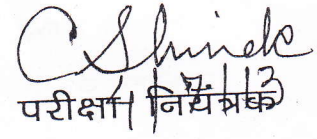 C Shinde
परीक्षा नियंत्रक